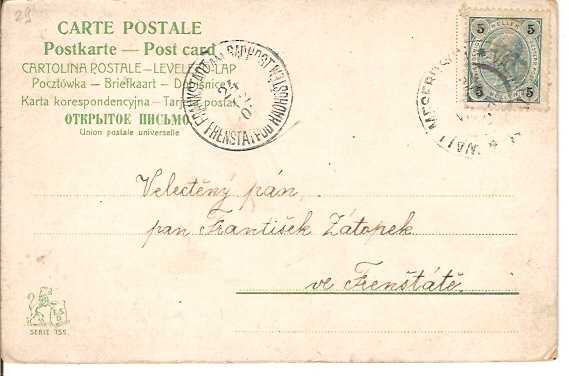 29
CARTE POSTALE
Postkarte — Post card
CARTOLINA POSTALE – LEVELEZŐ-LAP
Pocztówka – Briefkaart – Dopisnice
Karta korespondencyjna – Tarjeta postal
ОТКРЫТОЕ ПИСЬМО
Union postale universelle
FRENŠTÁT POD
5 5
5 5
WALL. MESERITSCH
Velectěný pán,
pan František Zátopek
ve Frenštátě.
SERIE 155